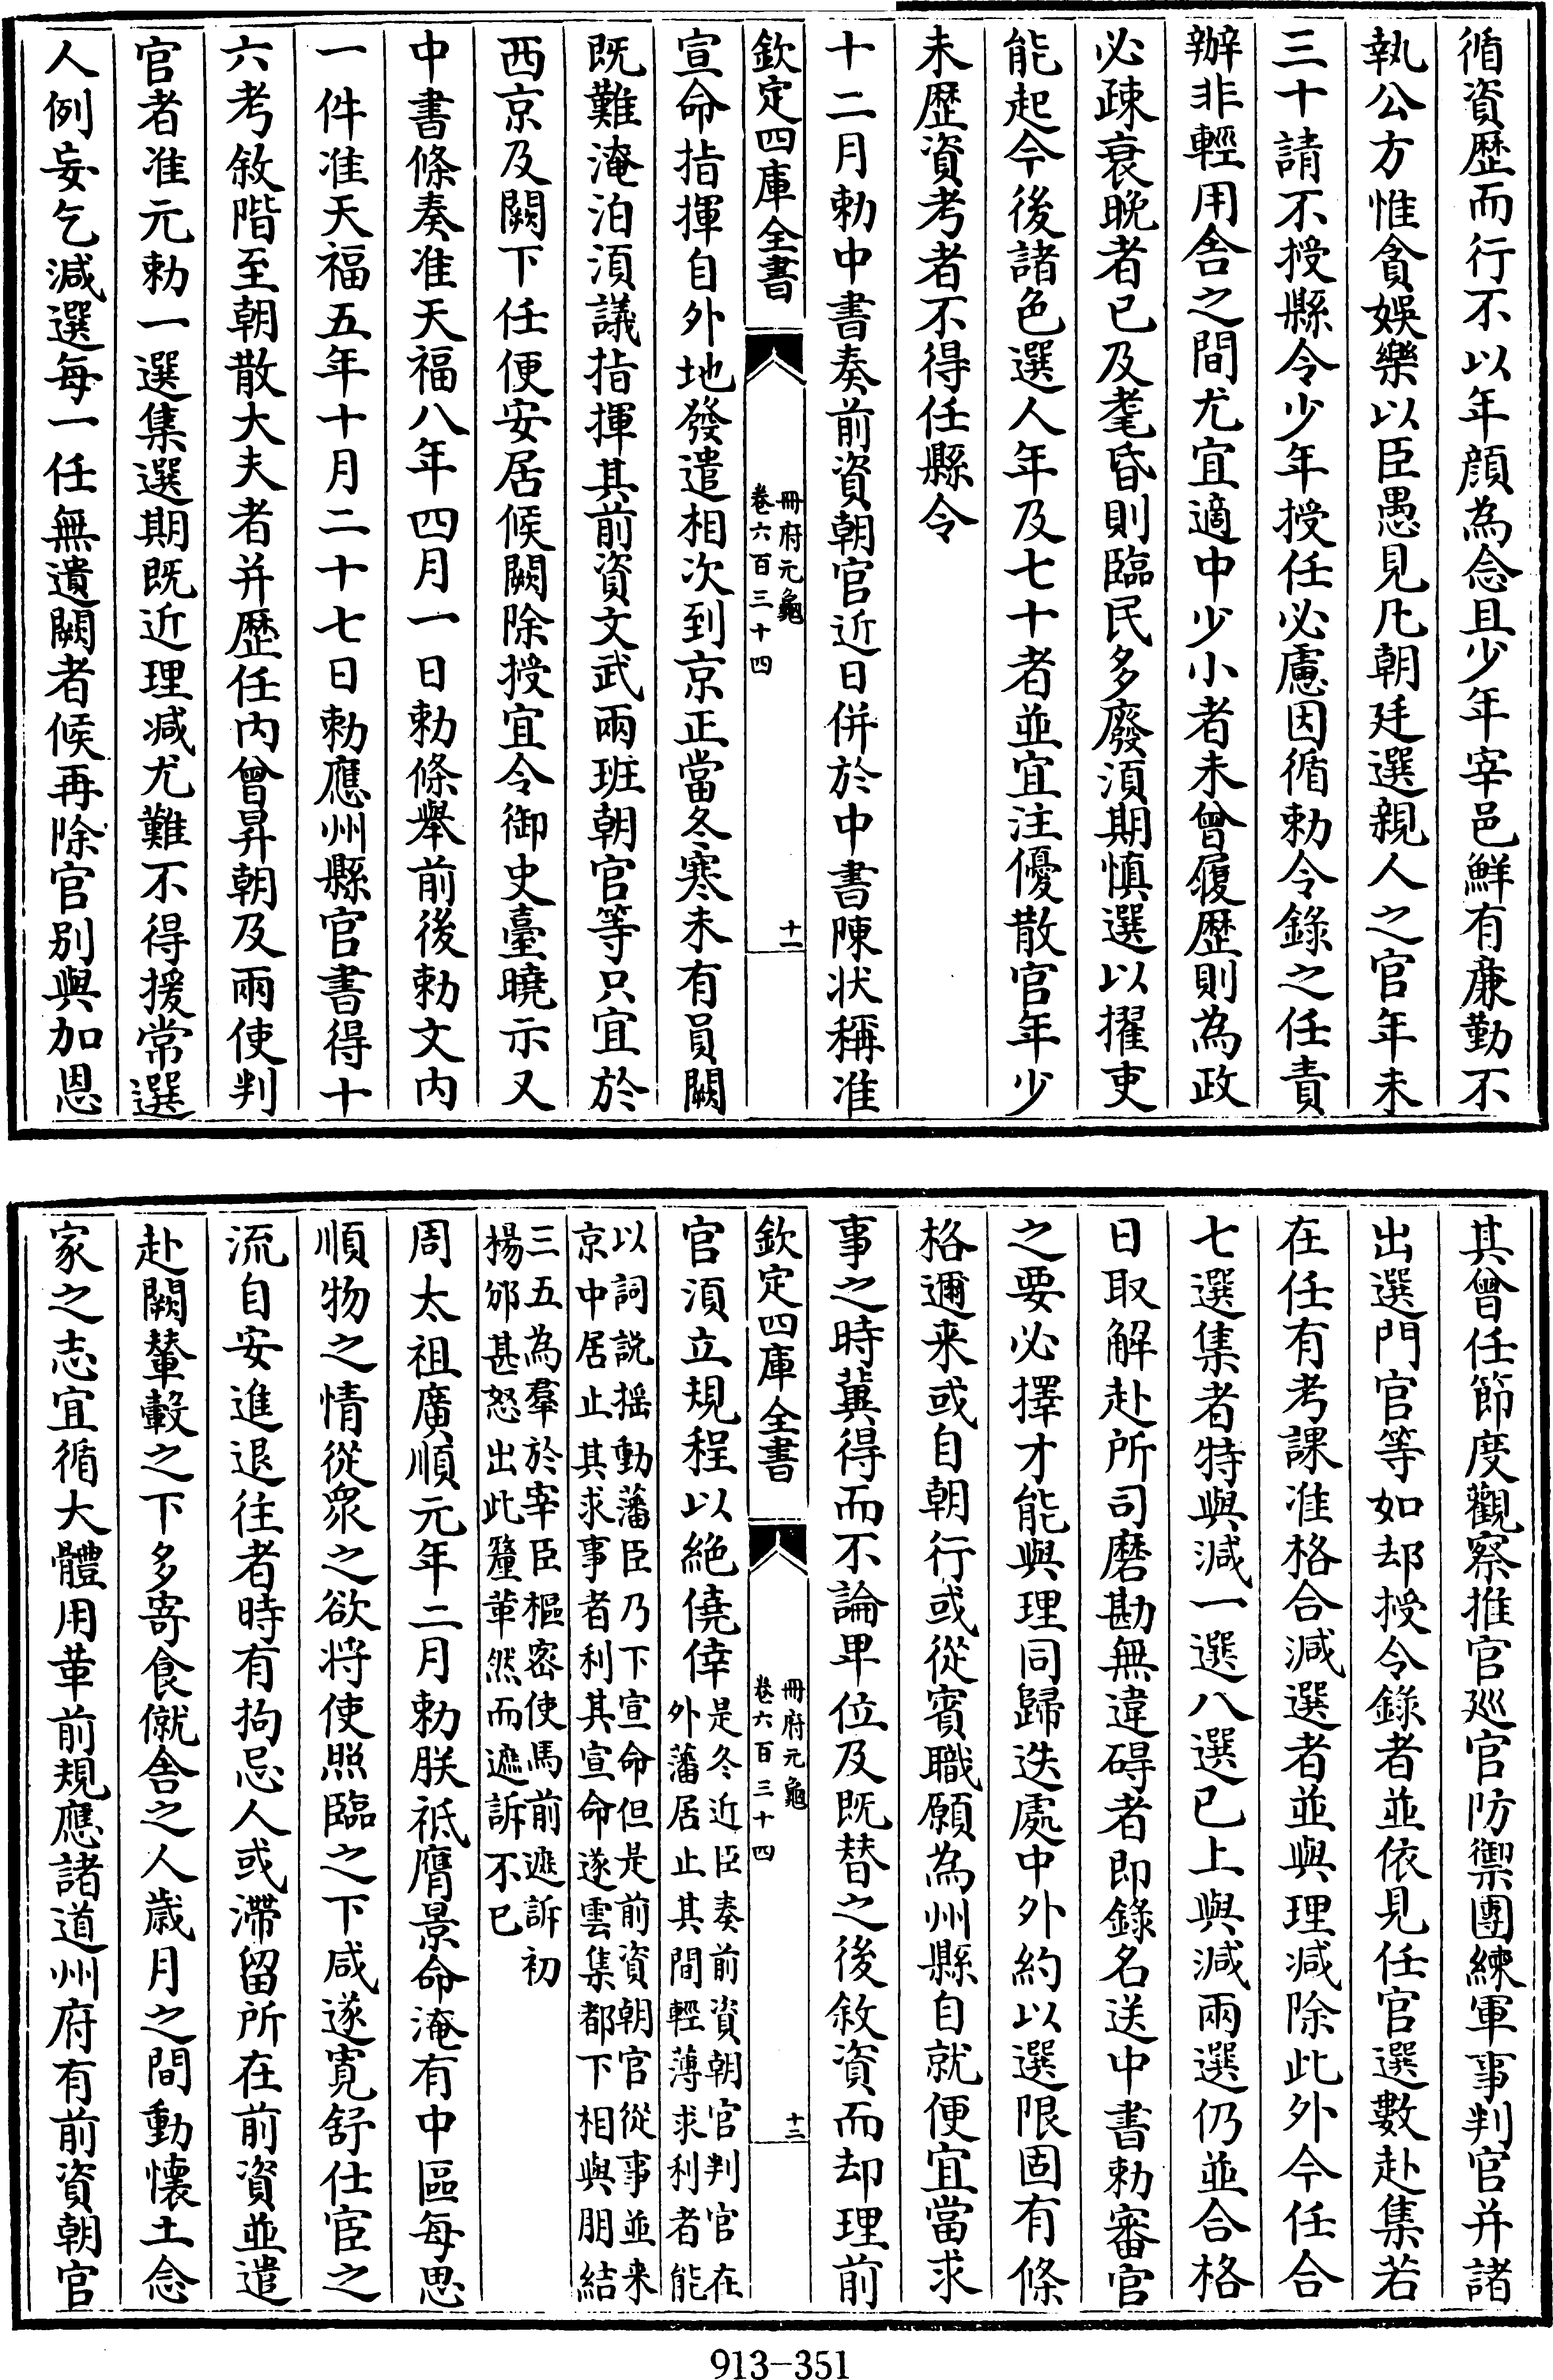 循資歴而行不以年顔為念且少年宰邑鮮有亷勤不
執公方惟貪娛樂以臣愚見凡朝廷選親人之官年未
三十請不授縣令少年授任必慮因循勅令錄之任責
辦非輕用舍之間尤宜適中少小者未曾履歴則為政
必疎衰晚者已及耄昏則臨民多廢湏期慎選以擢吏
能起今後諸色選人年及七十者並宜注優散官年少
未歴資考者不得任縣令
十二月勅中書奏前資朝官近日併於中書陳狀稱准
欽定四庫全書
冊府元龜
卷六百三十四
十一
宣命指揮自外地發遣相次到京正當冬寒未有員闕
既難淹泊湏議指揮其前資文武兩班朝官等只宜於
西京及闕下任便安居候闕除授宜令御史臺曉示又
中書條奏准天福八年四月一日勅條舉前後勅文内
一件准天福五年十月二十七日勅應州縣官書得十
六考敘階至朝散大夫者并歴任内曾昇朝及兩使判
官者准元勅一選集選期既近理减尤難不得援常選
人例妄乞減選每一任無遺闕者候再除官别與加恩
其曾任節度觀察推官廵官防禦團練軍事判官并諸
出選門官等如却授令錄者並依見任官選數赴集若
在任有考課准格合減選者並與理減除此外今任合
七選集者特與減一選八選已上與減兩選仍並合格
日取解赴所司磨勘無違碍者即錄名送中書勅審官
之要必擇才能與理同歸迭處中外約以選限固有條
格邇来或自朝行或從賓職願為州縣自就便宜當求
事之時冀得而不論卑位及既替之後敘資而却理前
欽定四庫全書
冊府元龜
卷六百三十四
十二
官湏立規程以絶僥倖是冬近臣奏前資朝官判官在
外藩居止其間輕薄求利者能
以詞説揺動藩臣乃下宣命但是前資朝官從事並来
京中居止其求事者利其宣命遂雲集都下相與朋結
三五為羣於宰臣樞密使馬前遮訴初
楊邠甚怒出此釐革然而遮訴不已
周太祖廣順元年二月勅朕祗膺景命淹有中區每思
順物之情從衆之欲将使照臨之下咸遂寛舒仕宦之
流自安進退往者時有拘忌人或滯留所在前資並遣
赴闕輦轂之下多寄食僦舍之人歳月之間動懷土念
家之志宜循大體用革前規應諸道州府有前資朝官
913-351